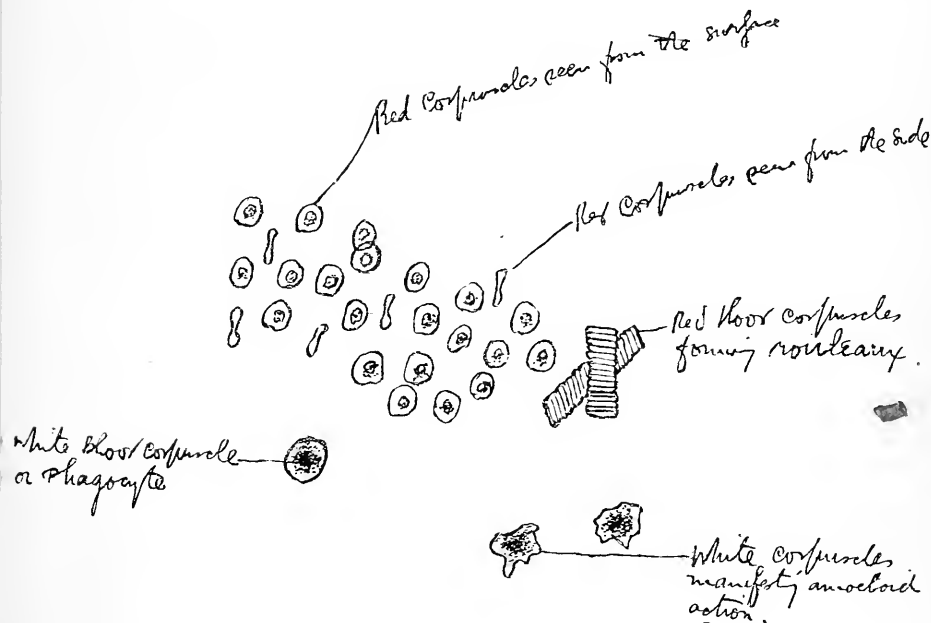 Red Corpuscles seen from the surface
Red Corpuscles seen from the side
Red Bloor corpuscles
forming rouleaux.
White Bloor corpuscle
or Phagocyte
White corpuscles
manifestg amoeboid
action.